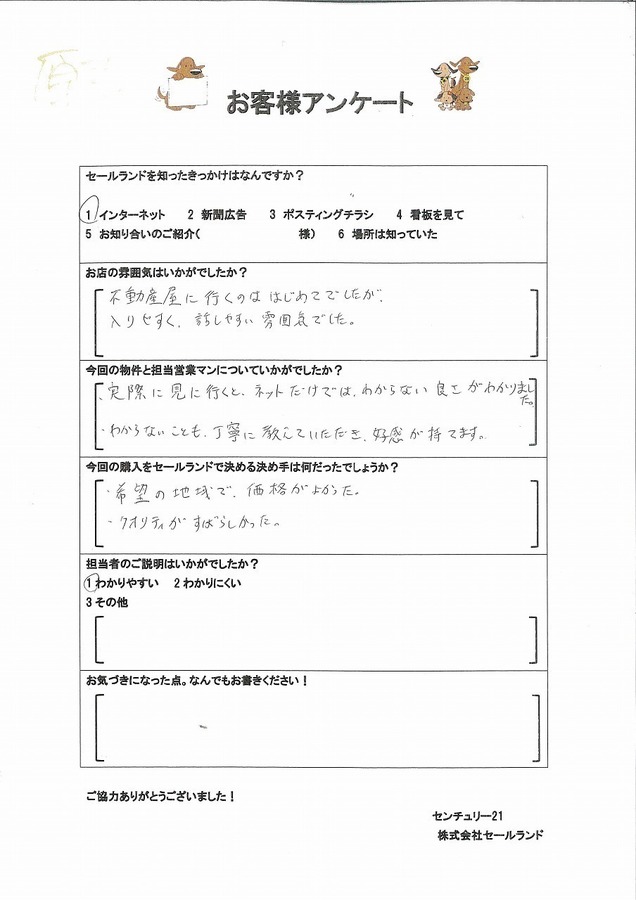 お客様アンケート
セールランドを知ったきっかけはなんですか？
1 インターネット 2 新聞広告 3 ポスティングチラシ 4 看板を見て
5 お知り合いのご紹介( 様) 6 場所は知っていた
お店の雰囲気はいかがでしたか？
不動産屋に行くのははじめてでしたが、
入りやすく、話しやすい雰囲気でした。
今回の物件と担当営業マンについていかがでしたか？
・実際に見に行くと、ネットだけでは、わからない良さがわかりました。
・わからないことも、丁寧に教えていただき、好感が持てます。
今回の購入をセールランドで決める決め手は何だったでしょうか？
・希望の地域で、価格がよかった。
・クオリティがすばらしかった。
担当者のご説明はいかがでしたか？
1 わかりやすい 2 わかりにくい
3 その他
お気づきになった点。なんでもお書きください！
ご協力ありがとうございました！
センチュリー21
株式会社セールランド